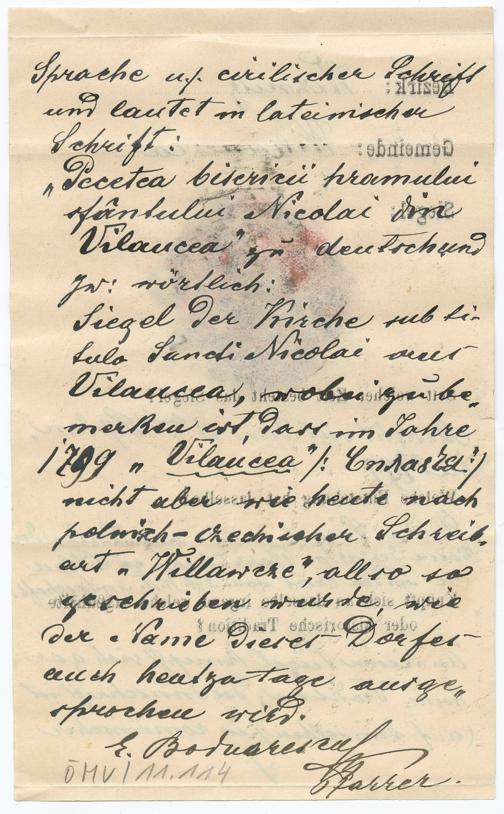 Sprache u. cirilischer Schrift
und lautet in lateinischer
Schrift:
„Pecetea bisericii hramului
sfântului Nicolai din
Vilaucea" zu deutsch und
zw: wörtlich:
Siegel der Kirche sub ti-
tulo Sancti Nicolai aus
Vilaucea, wobei zu be-
merken ist, dass im Jahre
1799 „Vilaucea"/:
nicht aber wie heute nach
polnisch-czechischer Schreib-
art „Willawcze", allso so
geschrieben wurde, wie
der Name dieses Dorfes
auch heutzutage ausge-
sprochen wird.
E. Bodnarescul
Pfarrer.
ÖMV/11.114
Bezirk:
Gemeinde:
Siegel:
oder historische Tradition?